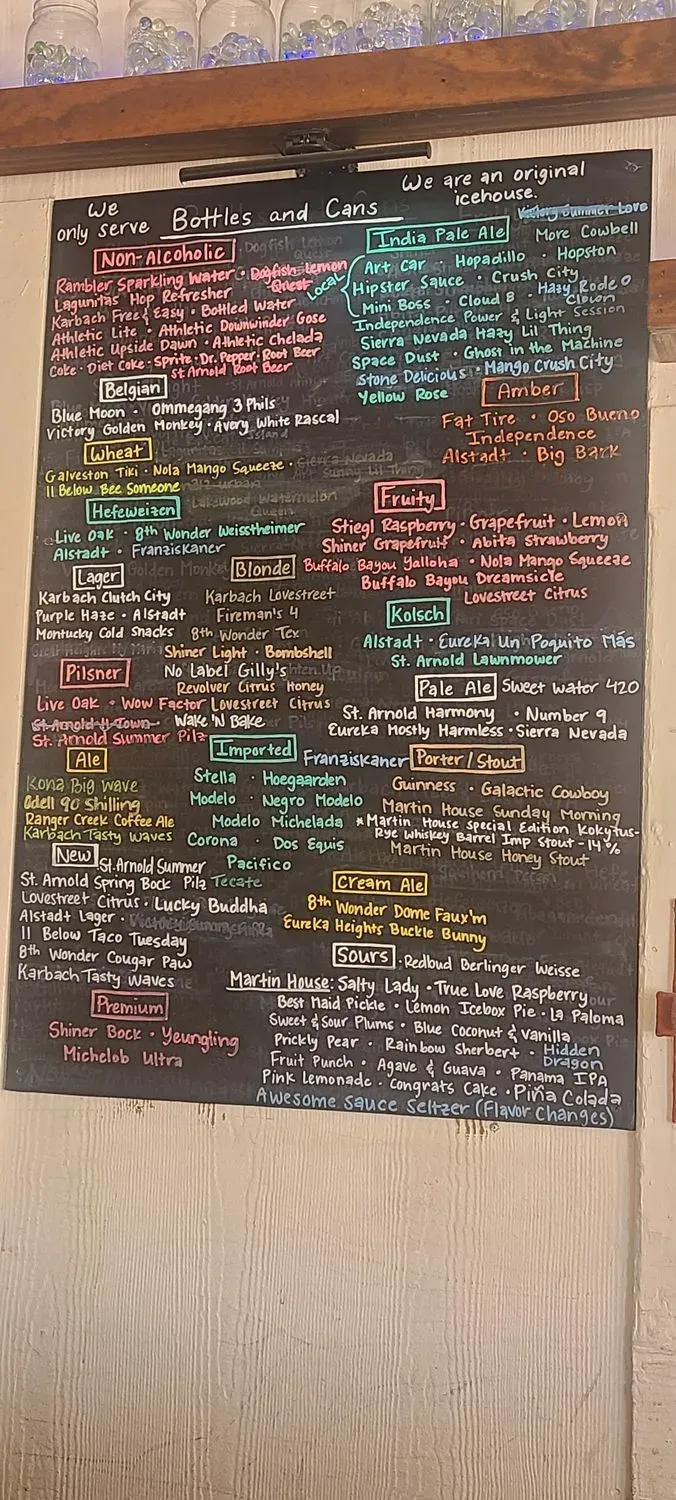 We
only serve Bottles and Cans
We are an original
icehouse.
Non-Alcoholic
Rambler Sparkling Water · Dogfish Lemon
Quest
Lagunitas Hop Refresher
Karbach Free & Easy · Bottled Water
Athletic Lite · Athletic Downwinder Gose
Athletic Upside Dawn · Athletic Chelada
Coke · Diet Coke · Sprite · Dr. Pepper · Root Beer
St Arnold Root Beer
Belgian
Blue Moon · Ommegang 3 Phils
Victory Golden Monkey · Avery White Rascal
Wheat
Galveston Tiki · Nola Mango Squeeze ·
11 Below Bee Someone
Hefeweizen
Live Oak · 8th Wonder Weisstheimer
Alstadt · Franziskaner
Lager
Karbach Clutch City
Purple Haze · Alstadt
Montucky Cold Snacks
Blonde
Karbach Lovestreet
Fireman's 4
8th Wonder Tex
Shiner Light · Bombshell
No Label Gilly's
Revolver Citrus Honey
Lovestreet Citrus
Wake 'N Bake
Pilsner
Live Oak · Wow Factor
St Arnold H-Town
St. Arnold Summer Pilz
Ale
Kona Big Wave
Odell 90 Shilling
Ranger Creek Coffee Ale
Karbach Tasty Waves
Imported
Franziskaner
Stella · Hoegaarden
Modelo · Negro Modelo
Modelo Michelada
Corona · Dos Equis
Pacifico
Tecate
New
St. Arnold Summer
Pilz
St. Arnold Spring Bock
Lovestreet Citrus · Lucky Buddha
Alstadt Lager ·
11 Below Taco Tuesday
8th Wonder Cougar Paw
Karbach Tasty Waves
Premium
Shiner Bock · Yeungling
Michelob Ultra
India Pale Ale
Victory Summer Love
More Cowbell
Local
Art Car · Hopadillo · Hopston
Hipster Sauce · Crush City
Mini Boss · Cloud 8 · Hazy Rodeo
Clown
Independence Power & Light Session
Sierra Nevada Hazy Lil Thing
Space Dust · Ghost in the Machine
Stone Delicious · Mango Crush City
Yellow Rose
Amber
Fat Tire · Oso Bueno
Independence
Alstadt · Big Bark
Fruity
Stiegl Raspberry · Grapefruit · Lemon
Shiner Grapefruit · Abita Strawberry
Buffalo Bayou Yalloha · Nola Mango Squeeze
Buffalo Bayou Dreamsicle
Lovestreet Citrus
Kolsch
Alstadt · Eureka! Un Poquito Más
St. Arnold Lawnmower
Pale Ale
Sweet Water 420
St. Arnold Harmony · Number 9
Eureka Mostly Harmless · Sierra Nevada
Porter/Stout
Guinness · Galactic Cowboy
Martin House Sunday Morning
*Martin House Special Edition Kokytus-
Rye Whiskey Barrel Imp Stout - 14%
Martin House Honey Stout
Cream Ale
8th Wonder Dome Faux'm
Eureka Heights Buckle Bunny
Sours
· Redbud Berlinger Weisse
Martin House: Salty Lady · True Love Raspberry
Best Maid Pickle · Lemon Icebox Pie · La Paloma
Sweet & Sour Plums · Blue Coconut & Vanilla
Prickly Pear · Rainbow Sherbert · Hidden
Dragon
Fruit Punch · Agave & Guava · Panama IPA
Pink Lemonade · Congrats Cake · Piña Colada
Awesome Sauce Seltzer (Flavor Changes)